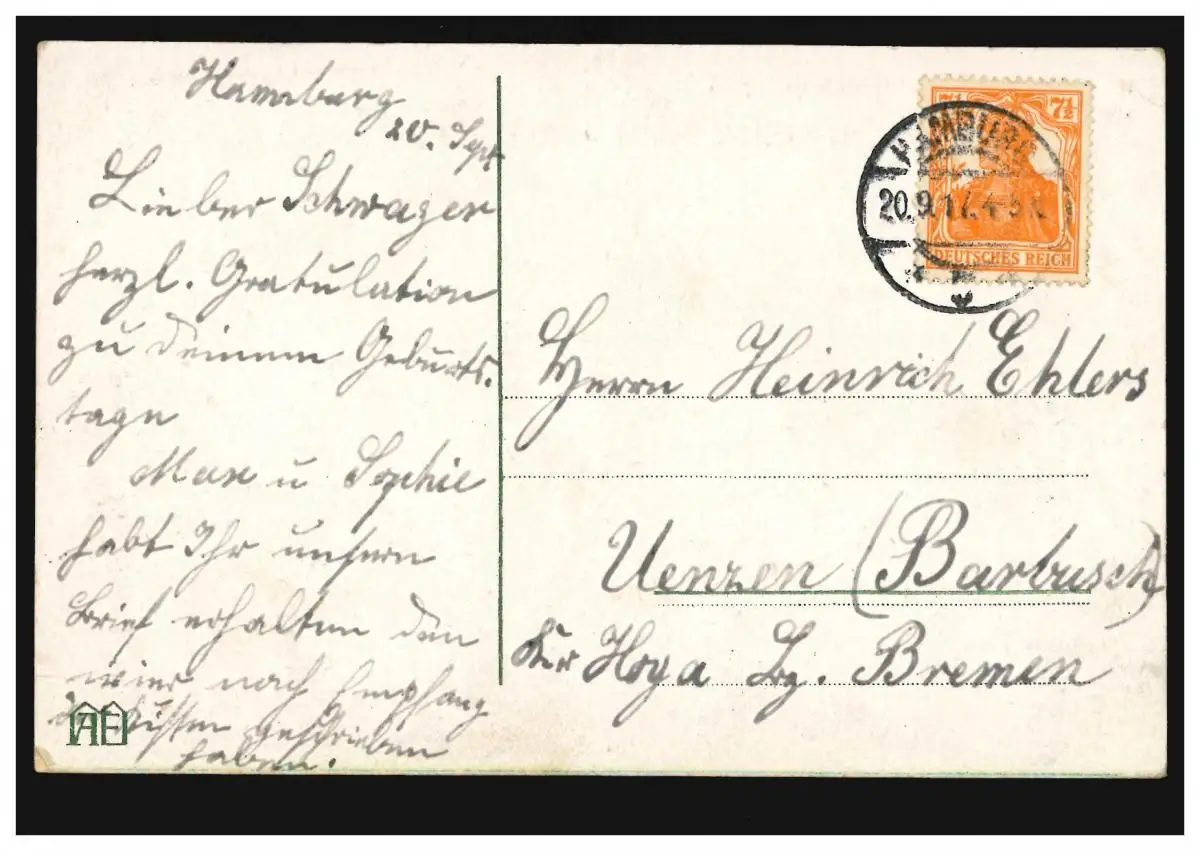 Hamburg
20. Sept.
Lieber Schwager
herzl. Gratulation
zu deinem Geburts-
tage
Max u Sophie
habt Ihr unsern
Brief erhalten den
wier nach Empfang
geschrieben
haben.
7½ 7½
HAMBURG
20.9.17.4-5N.
DEUTSCHES REICH
Herrn Heinrich Ehlers
Uenzen (Barbusch)
Kr Hoya Bz. Bremen
AE